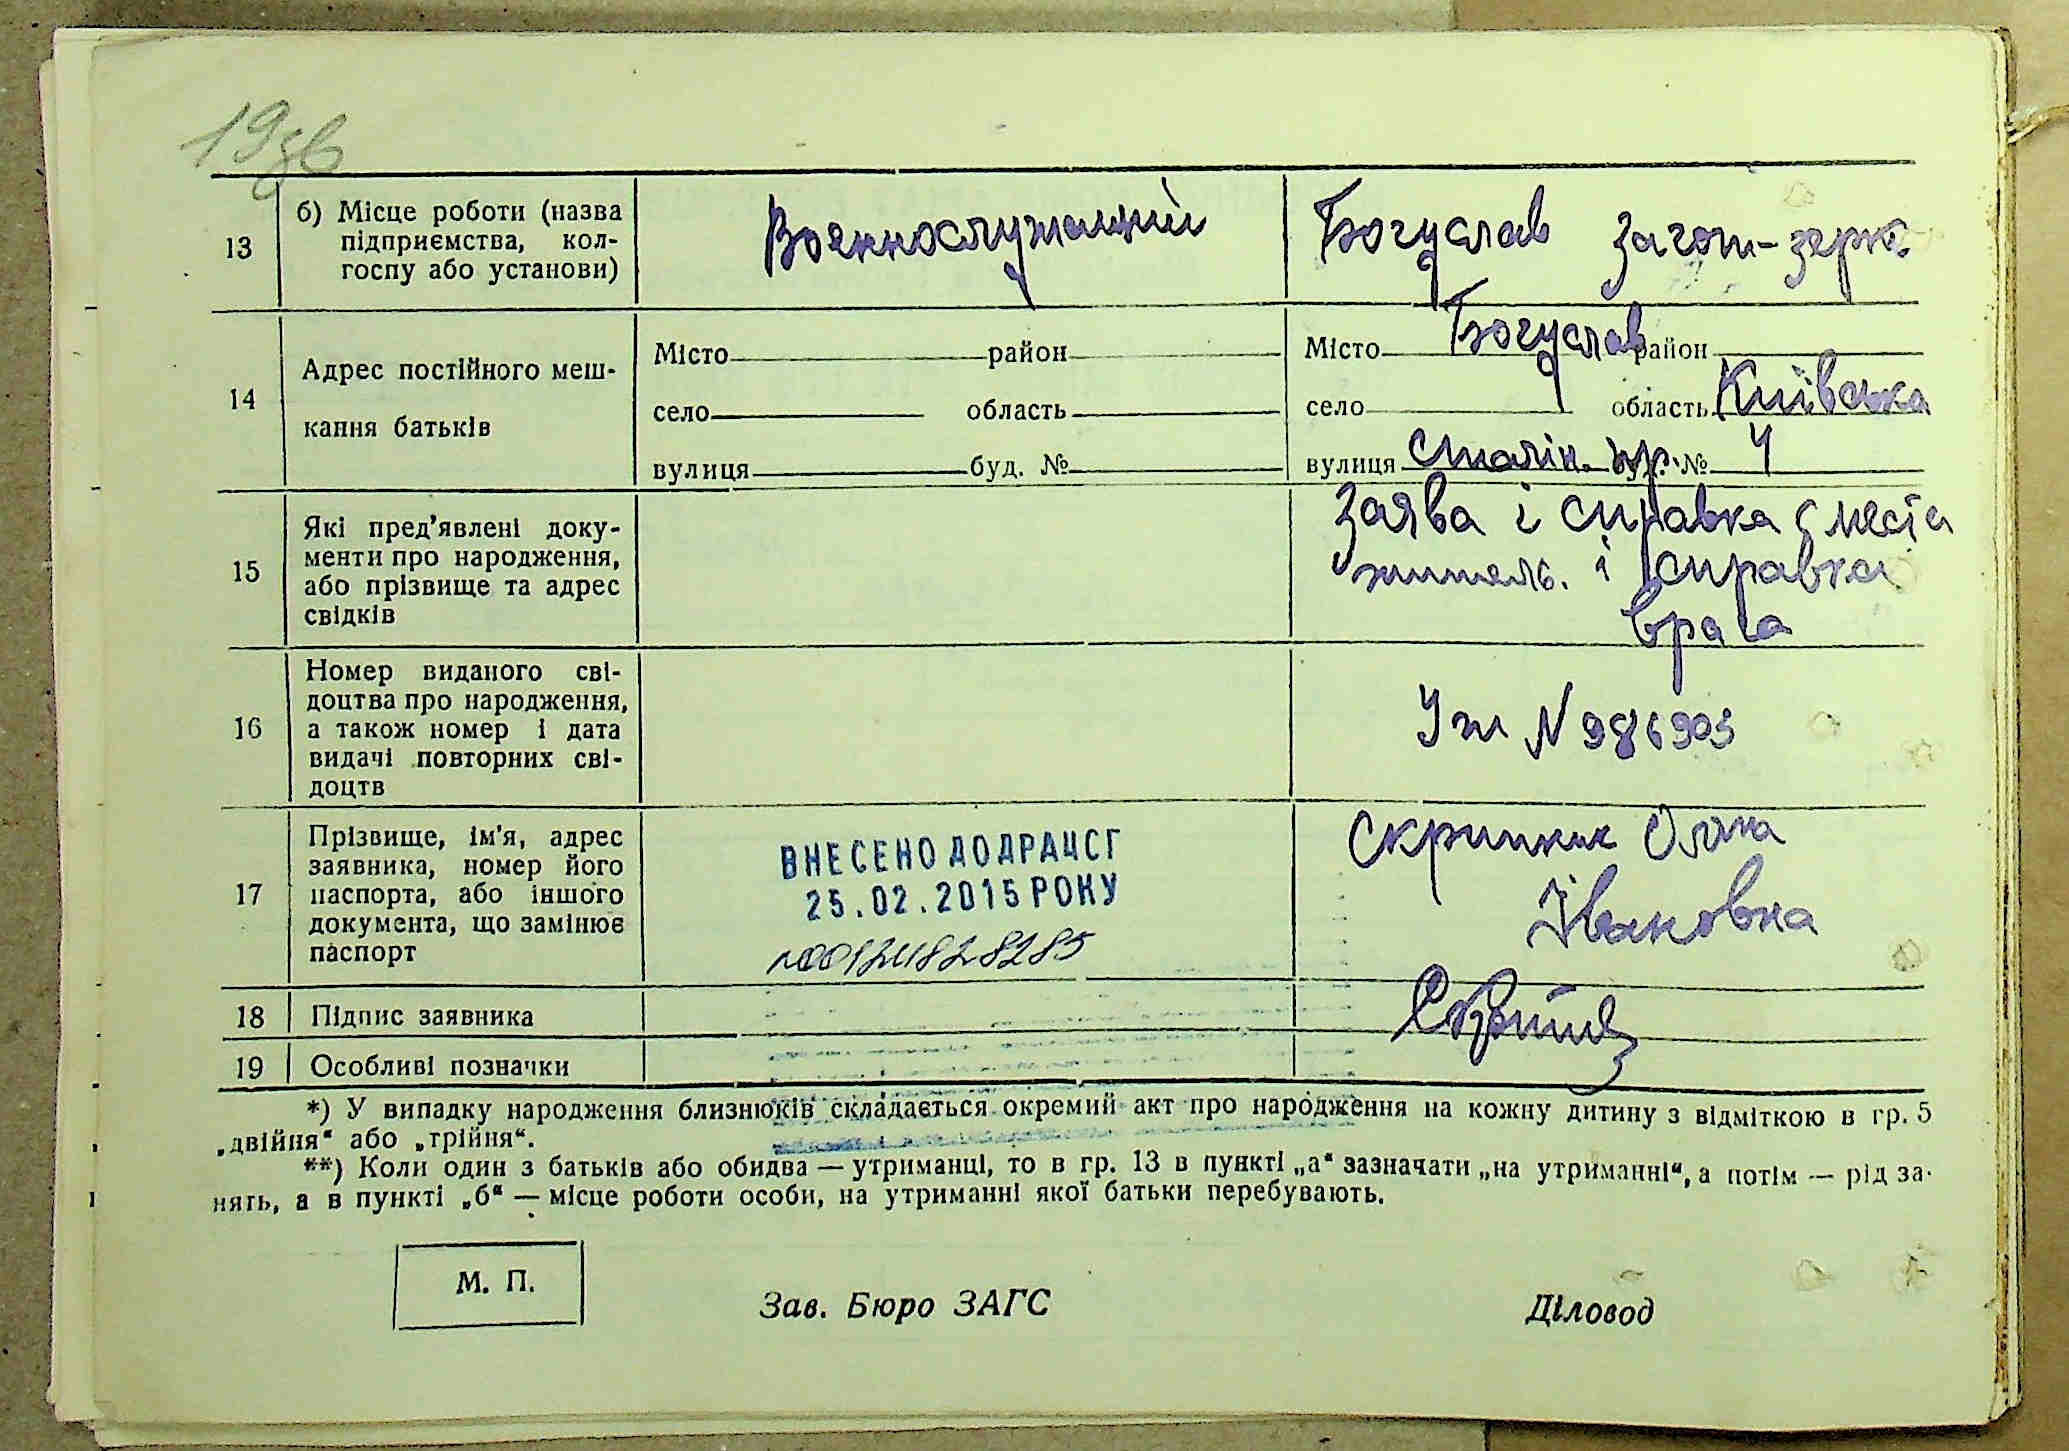 1956
13
б) Місце роботи (назва
підприємства, кол-
госпу або установи)
Военнослужащий
Богуслав Загот-зерно
14
Адрес постійного меш-
кання батьків
Місто район
село область
вулиця буд. №
Місто Богуслав район
село область Київська
вулиця Сталін. пр. № 4
15
Які пред'явлені доку-
менти про народження,
або прізвище та адрес
свідків
Заява і справка с места
жительс. і справка
врача
16
Номер виданого сві-
доцтва про народження,
а також номер і дата
видачі повторних сві-
доцтв
N 986903
17
Прізвище, ім'я, адрес
заявника, номер його
паспорта, або іншого
документа, що замінює
паспорт
ВНЕСЕНО ДО ДРАЦСГ
25.02.2015 РОКУ
00124828285
Скрипник Ольга
Івановна
18
Підпис заявника
19
Особливі позначки
*) У випадку народження близнюків складається окремий акт про народження на кожну дитину з відміткою в гр. 5
„двійня“ або „трійня“.
**) Коли один з батьків або обидва — утриманці, то в гр. 13 в пункті „а“ зазначати „на утриманні“, а потім — рід за-
нять, а в пункті „б“ — місце роботи особи, на утриманні якої батьки перебувають.
М. П.
Зав. Бюро ЗАГС
Діловод